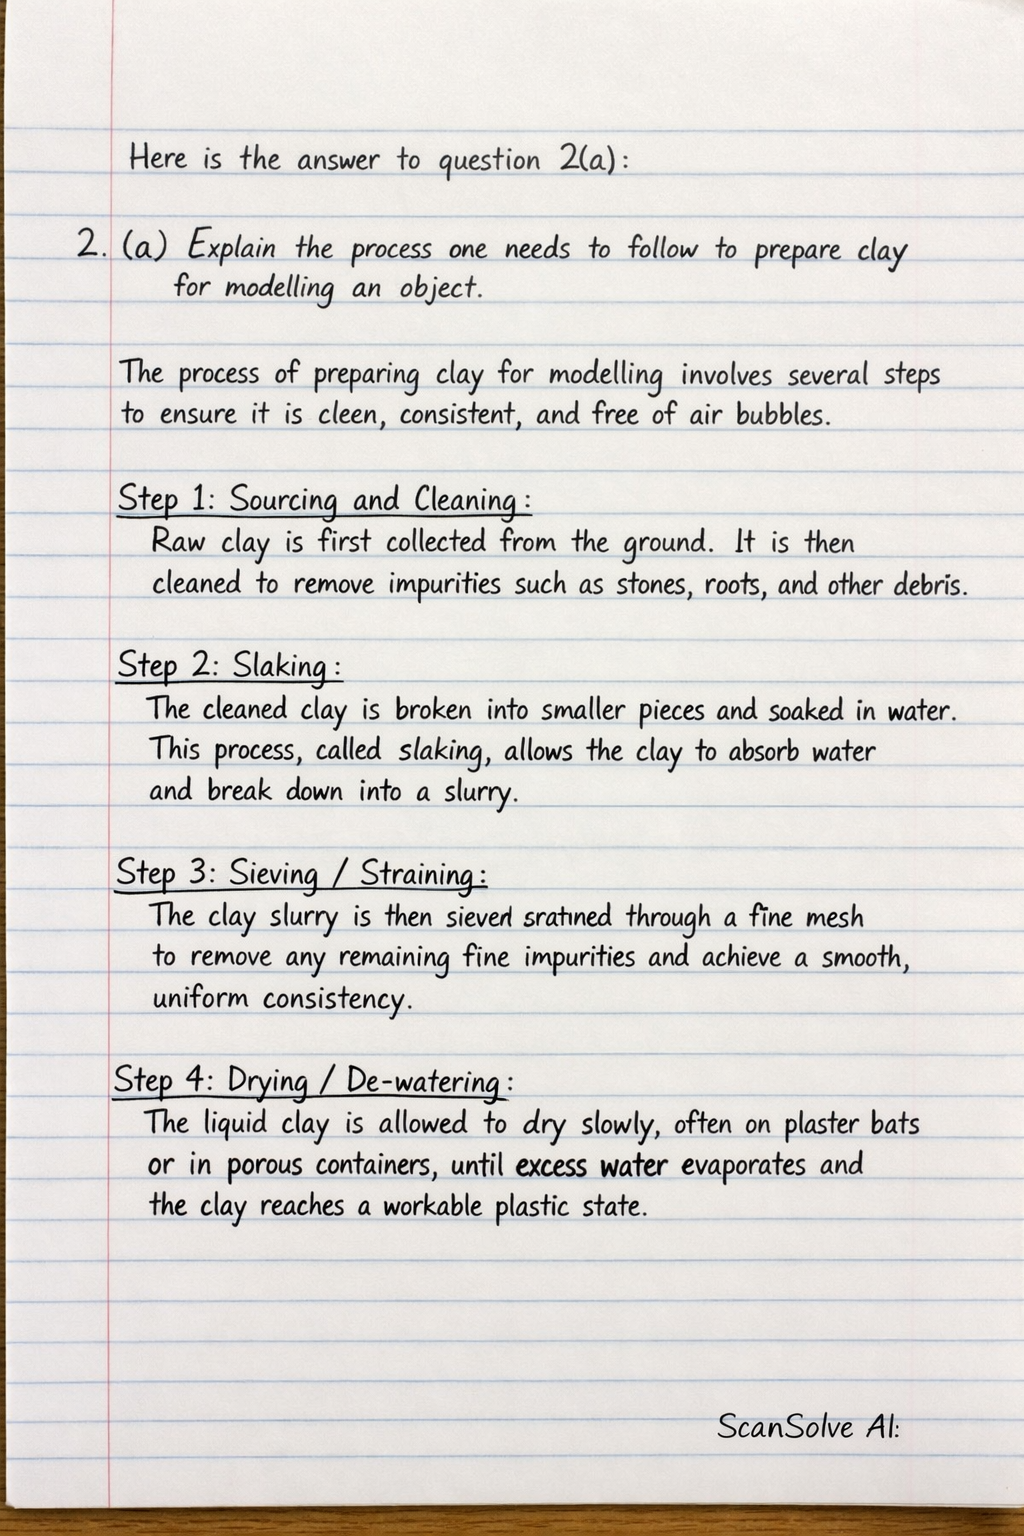 Here is the answer to question 2(a):
2. (a) Explain the process one needs to follow to prepare clay
for modelling an object.
The process of preparing clay for modelling involves several steps
to ensure it is cleen, consistent, and free of air bubbles.
Step 1: Sourcing and Cleaning:
Raw clay is first collected from the ground. It is then
cleaned to remove impurities such as stones, roots, and other debris.
Step 2: Slaking:
The cleaned clay is broken into smaller pieces and soaked in water.
This process, called slaking, allows the clay to absorb water
and break down into a slurry.
Step 3: Sieving / Straining:
The clay slurry is then through a fine mesh
to remove any remaining fine impurities and achieve a smooth,
uniform consistency.
Step 4: Drying / De-watering:
The liquid clay is allowed to dry slowly, often on plaster bats
or in porous containers, until excess water evaporates and
the clay reaches a workable plastic state.
ScanSolve AI: